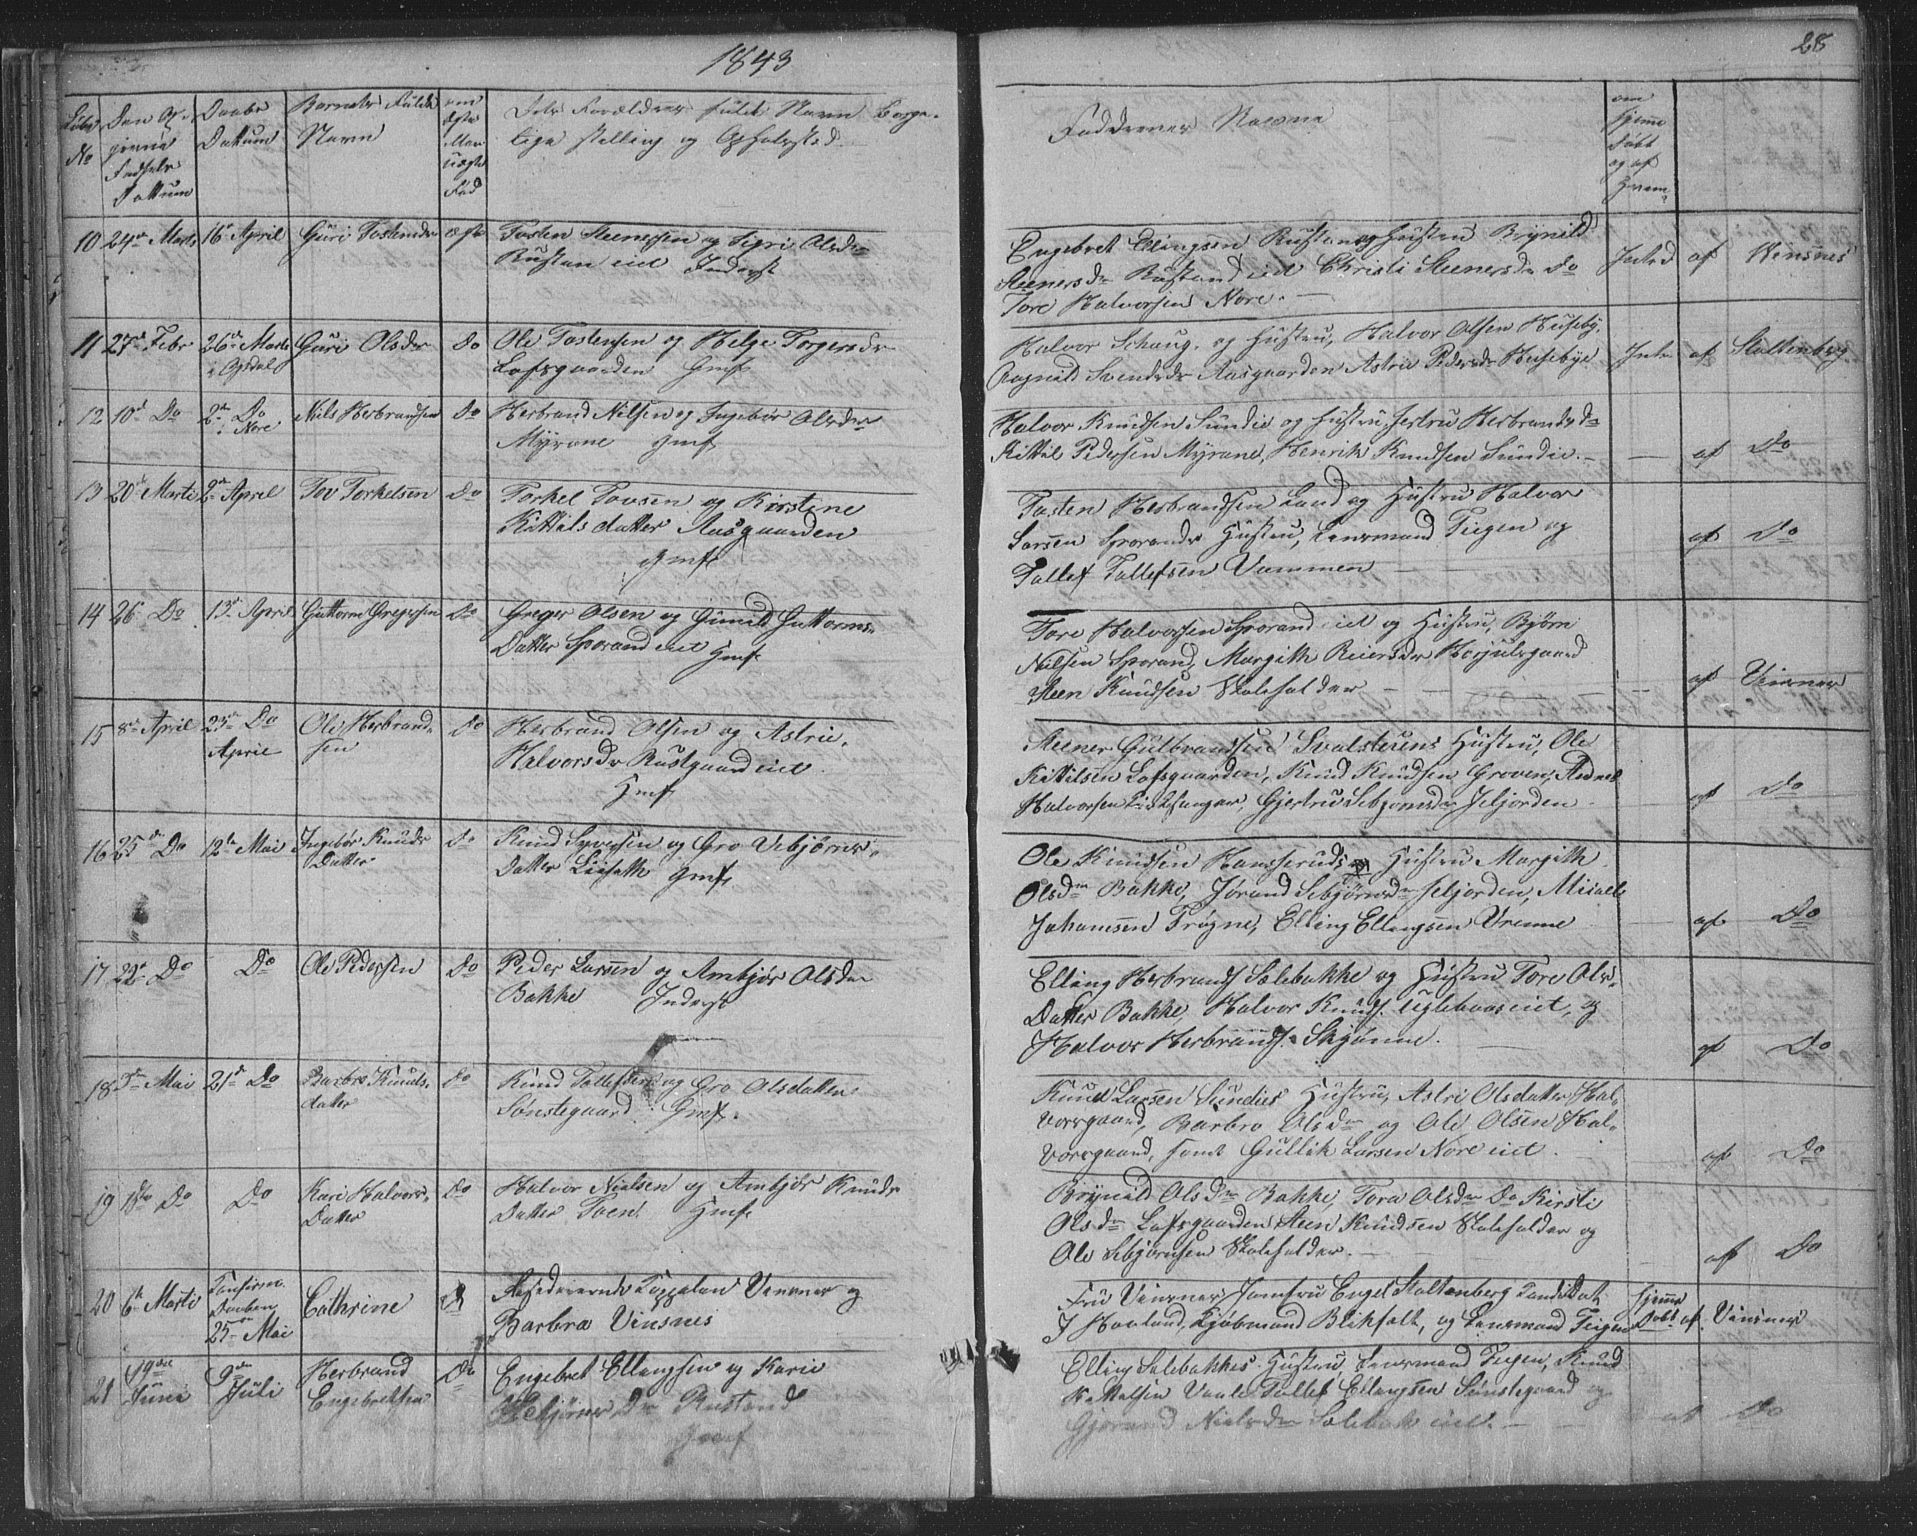 1843
28
Løbe No
Den Op-
givne
Fødsels
Dattum
Daabs
Dattum
Barnets Fulde
Navn
om
ægte
eller
uægte
Fød
Dets Forældres fulde Navn borger-
lige stilling og Opholdsted
Faddernes Navne
om
hjemme
døbt
og af
Hvem
10 24de Marts 16de April Guri Tostensdr ægte Tosten Steenersen og Sigri Olsdr
Rustan eiet Inderst
Engebret Ellingsen Rustan og Hustru Brynild
Steenersdr Rustand eiet Christi Steenersdr Do
Tore Halvorsen Nore.
Intrd af Winsnes
11 27de Febr 26de Marts i Opdal Guri Olsdr Do Ole Tostensen og Helge Torgersdr
Lofsgaarden Gmf
Halvor Schaug, og Hustru, Halvor Olsen Huseby,
Ragnild Svendsdr Aasgaarden Astrie Pedersdr Husebye
Intr af Stoltenberg
12 10d Do 2de Do i Nore Niels Herbrandsen Do Herbrand Nilsen og Ingebør Olsdr
Myrane gmf
Halvor Knudsen Sundie og Hustru, Jertru Herbrandsd
Kittil Pedersen Myrane, Henrik Knudsen Sundie.
af Do
13 20de Marts 2de April Tov Torkelsen Do Torkel Tovsen og Kirstine
Kittils datter Aasgaarden
gmf
Tosten Herbrandsen Land og Hustru Halvor
Larsen Sporands Hustru, Lensmand Teigen og
Tollef Tollefsen Vammen
af Do
14 26 Do 13de April Guttorm Gregersen Do Greger Olsen og Gunild Guttorms-
Datter Sporand eiet Gmf
Tore Halvorsen Sporand eiet og Hustru, Bjørn
Nielsen Sporand, Margith Reiersdr Horjulsgaard
Steen Knudsen Skoleholder
af Vinsnes
15 8de April 23de Do April Ole Herbrand-
sen Do Herbrand Olsen og Astrie,
Halvorsdr Rustgaard eiet
Gmf
Steener Gulbrandsen Svalsteuns Hustru, Ole
Kittilsen Lofsgaarden, Knud Knudsen Groven,
Halvorsen Gjertru Sebjørnsdr Seljorden
af Do
16 25de Do 12te Mai Ingebør Knuds
Datter Do Knud Syversen og Gro Sebjørns-
Datter Gmf
Ole Knudsen Hansseruds Hustru Margith
Olsdr Bakke, Jørand Sebjørnsdr Seljorden, Misael
Johannsen Trøgne, Elling Ellingsen Vrenne
af Do
17 22de Do Do Ole Pedersen Do Peder Larsen og Ambjør Olsdr
Bakke Inderst
Elling Herbrands Sælebakke og Hustru Tore Ols-
Datter Bakke, Halvor Knuds. Uglehaas eiet, og
Halvor Herbrands. Skjønne.
af Do
18 Mai 21de Do Barbro Knuds-
datter Do Knud Tollefsen og Gro Olsdatter
Sønstegaard Gmf.
Knud Larsen Sundies Hustru, Astri Olsdatter Hal-
vorsgaard, Barbro Olsdr og Ole Olsen Hal-
vorsgaard, samt Gullik Larsen Nore eiet.
af Do
19 18de Do Do Kari Halvors-
Datter Do Halvor Nielsen og Ambjør Knuds
Datter Toen Gmf
Brynild Olsdr Bakke, Tora Olsdr Do Kirsti
Olsdr Lofsgaarden Steen Knudsen Skoleholder og
Ole Sebjørnsen Skoleholder.
af Do
20 6te Marts Confirm. Daaben 25de Mai Cathrine Residerende Cappelan Vinsnes og
Barbra Vinsnes
Fru Vinsnes, Jomfru Engel Stoltenberg Candidat
J Hovland, Kjøbmand Blikfelt, og Lensmand Teigen
Hjemme Døbt af Vinsnes
21 19de Juni 9de Juli Herbrand
Engebretsen Do Engebret Ellingsen og Karie
Sebjørns Dr Rustand
Gmf
Elling Sælebakkes Hustru, Lensmand Teigen, Knud
Tollef Ellingsen Sønstegaard og
Gjørand Nielsdr Sælebak eiet.
af Do